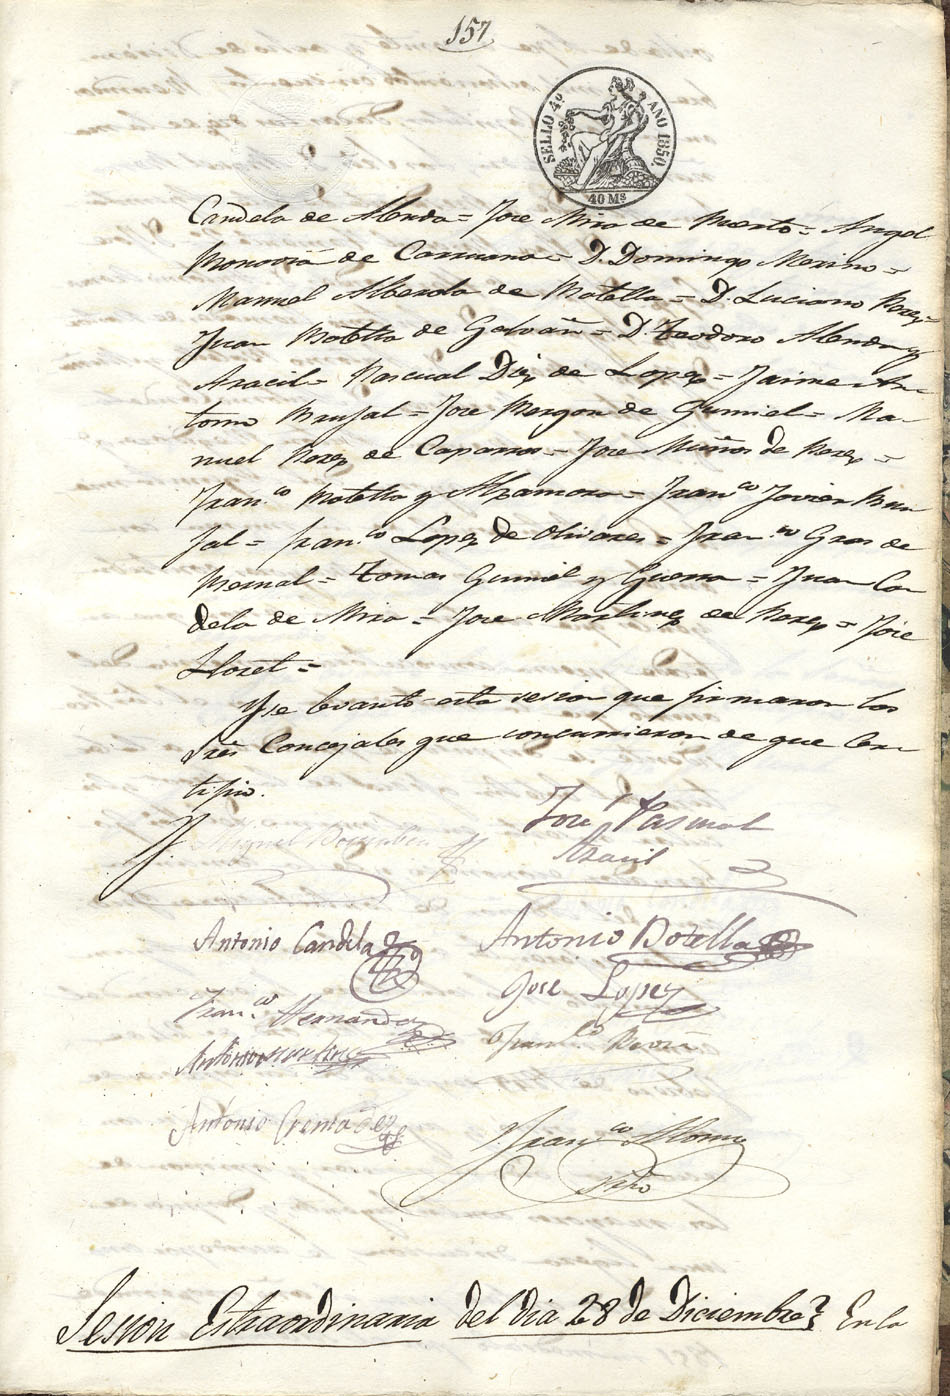 157
SELLO 4º AÑO 1850
40 Ms
Candela de Alenda = Jose Miro de Puerto = Angel
Monovar de Carruana = D. Domingo Merino =
Manuel Alberola de Botella = D. Luciano Perez
Juan Botella de Galvañ = D. Teodoro Alenda y
Aracil = Pascual Diez de Lopez = Jaime An-
tonio Brufal = Jose Bergon de Gumiel = Ma-
nuel Perez de Caparros = Jose Muños de Perez =
Franco Botella y Alzamora = Franco Javier Bru
fal = Franco Lopez de Olivares = Franco Gras de
Bernal = Tomas Gumiel y Guerra = Juan Can
dela de Miro = Jose Martinez de Perez = Jose
Lloret =
Y se levantó esta sesion que firmaron los
Sres Concejales que concurrieron de que cer-
tifico.
Jose Pascual
Aracil
Miguel
Antonio Candela
Antonio Botella
Jose Lopez
Franco Hernandez
Antonio Martinez
Franco
Antonio
Franco Alonso
Srio
Sesion Estraordinaria del dia 28 de Diciembre En la